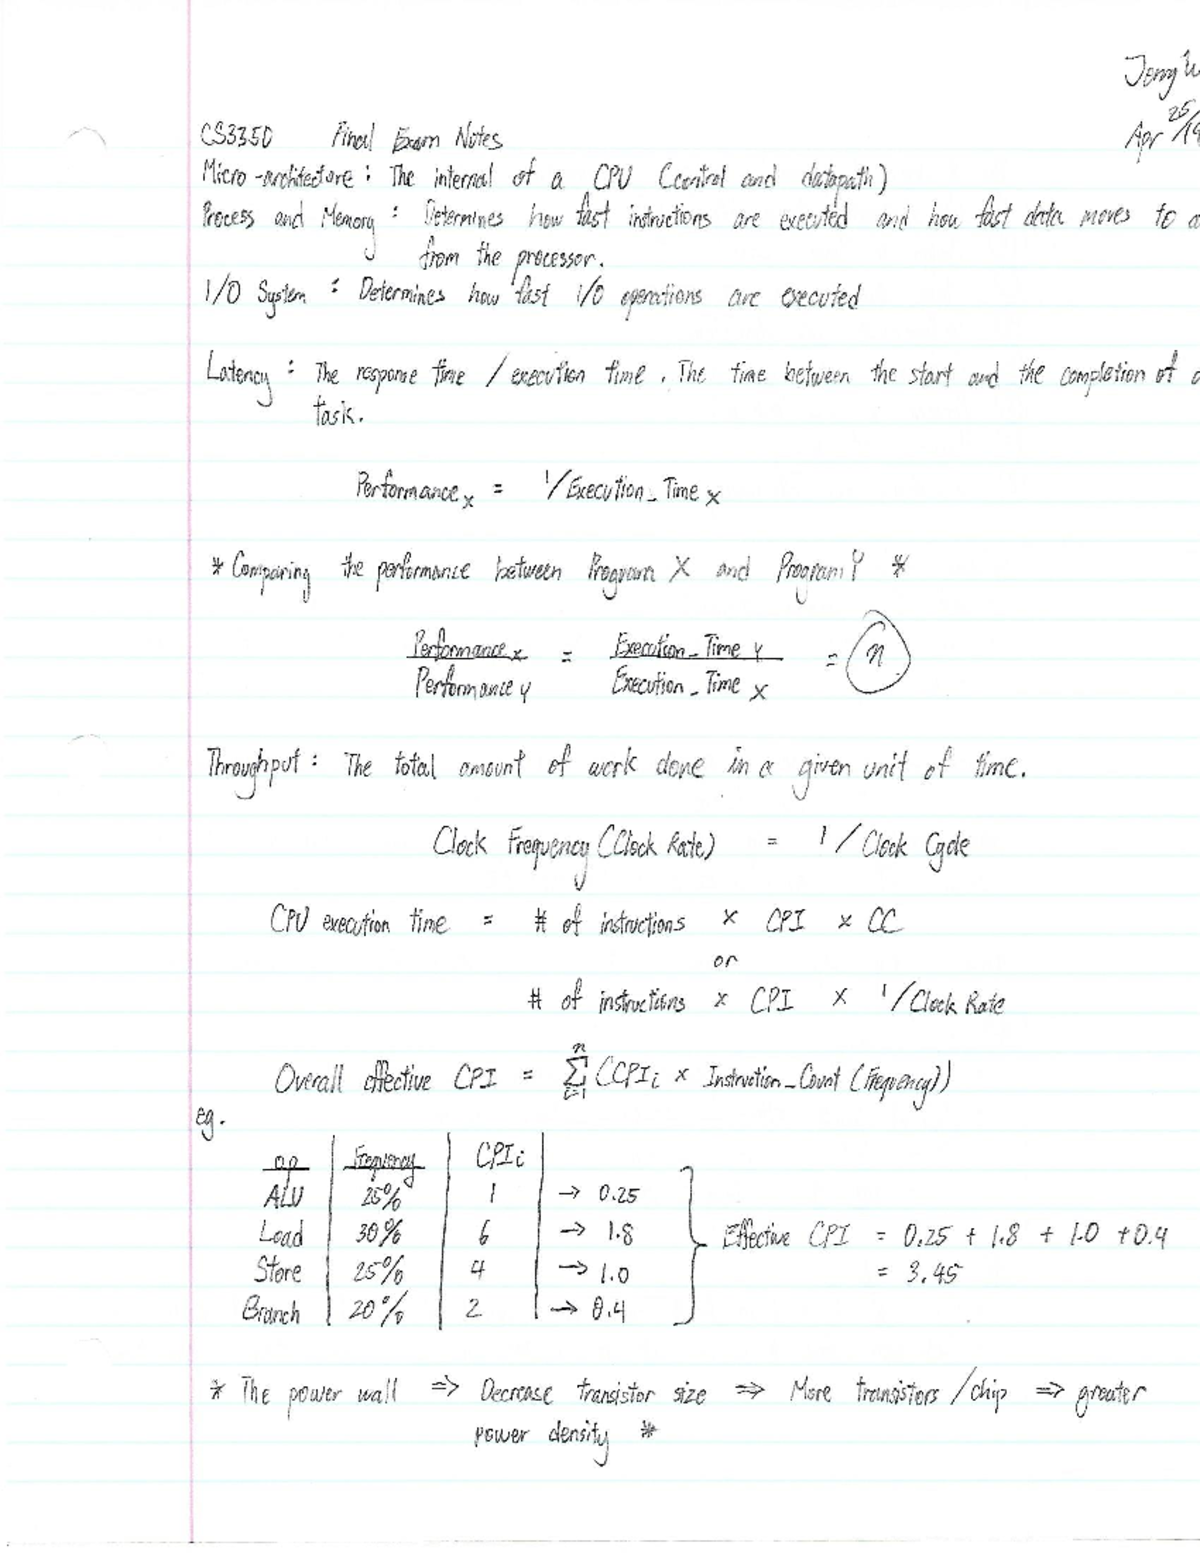 Jerry
Apr 25/19
CS3350 Final Exam Notes
Micro-architecture : The internal of a CPU (control and datapath)
Process and Memory : Determines how fast instructions are executed and how fast data moves to a
from the processor.
I/O System : Determines how fast I/O operations are executed
Latency : The response time / execution time. The time between the start and the completion of a
task.
Performance x = 1/Execution_Time x
* Comparing the performance between Program X and Program Y *
Performance x / Performance y = Execution_Time y / Execution_Time x = n
Throughput : The total amount of work done in a given unit of time.
Clock Frequency (Clock Rate) = 1 / Clock Cycle
CPU execution time = # of instructions x CPI x CC
or
# of instructions x CPI x 1/Clock Rate
Overall effective CPI = n Σ i=1 (CPI i x Instruction_Count (Frequency))
eg.
op Frequency CPI i
ALU 25% 1 → 0.25
Load 30% 6 → 1.8 Effective CPI = 0.25 + 1.8 + 1.0 + 0.4
Store 25% 4 → 1.0 = 3.45
Branch 20% 2 → 0.4
* The power wall => Decrease transistor size => More transistors / chip => greater
power density *